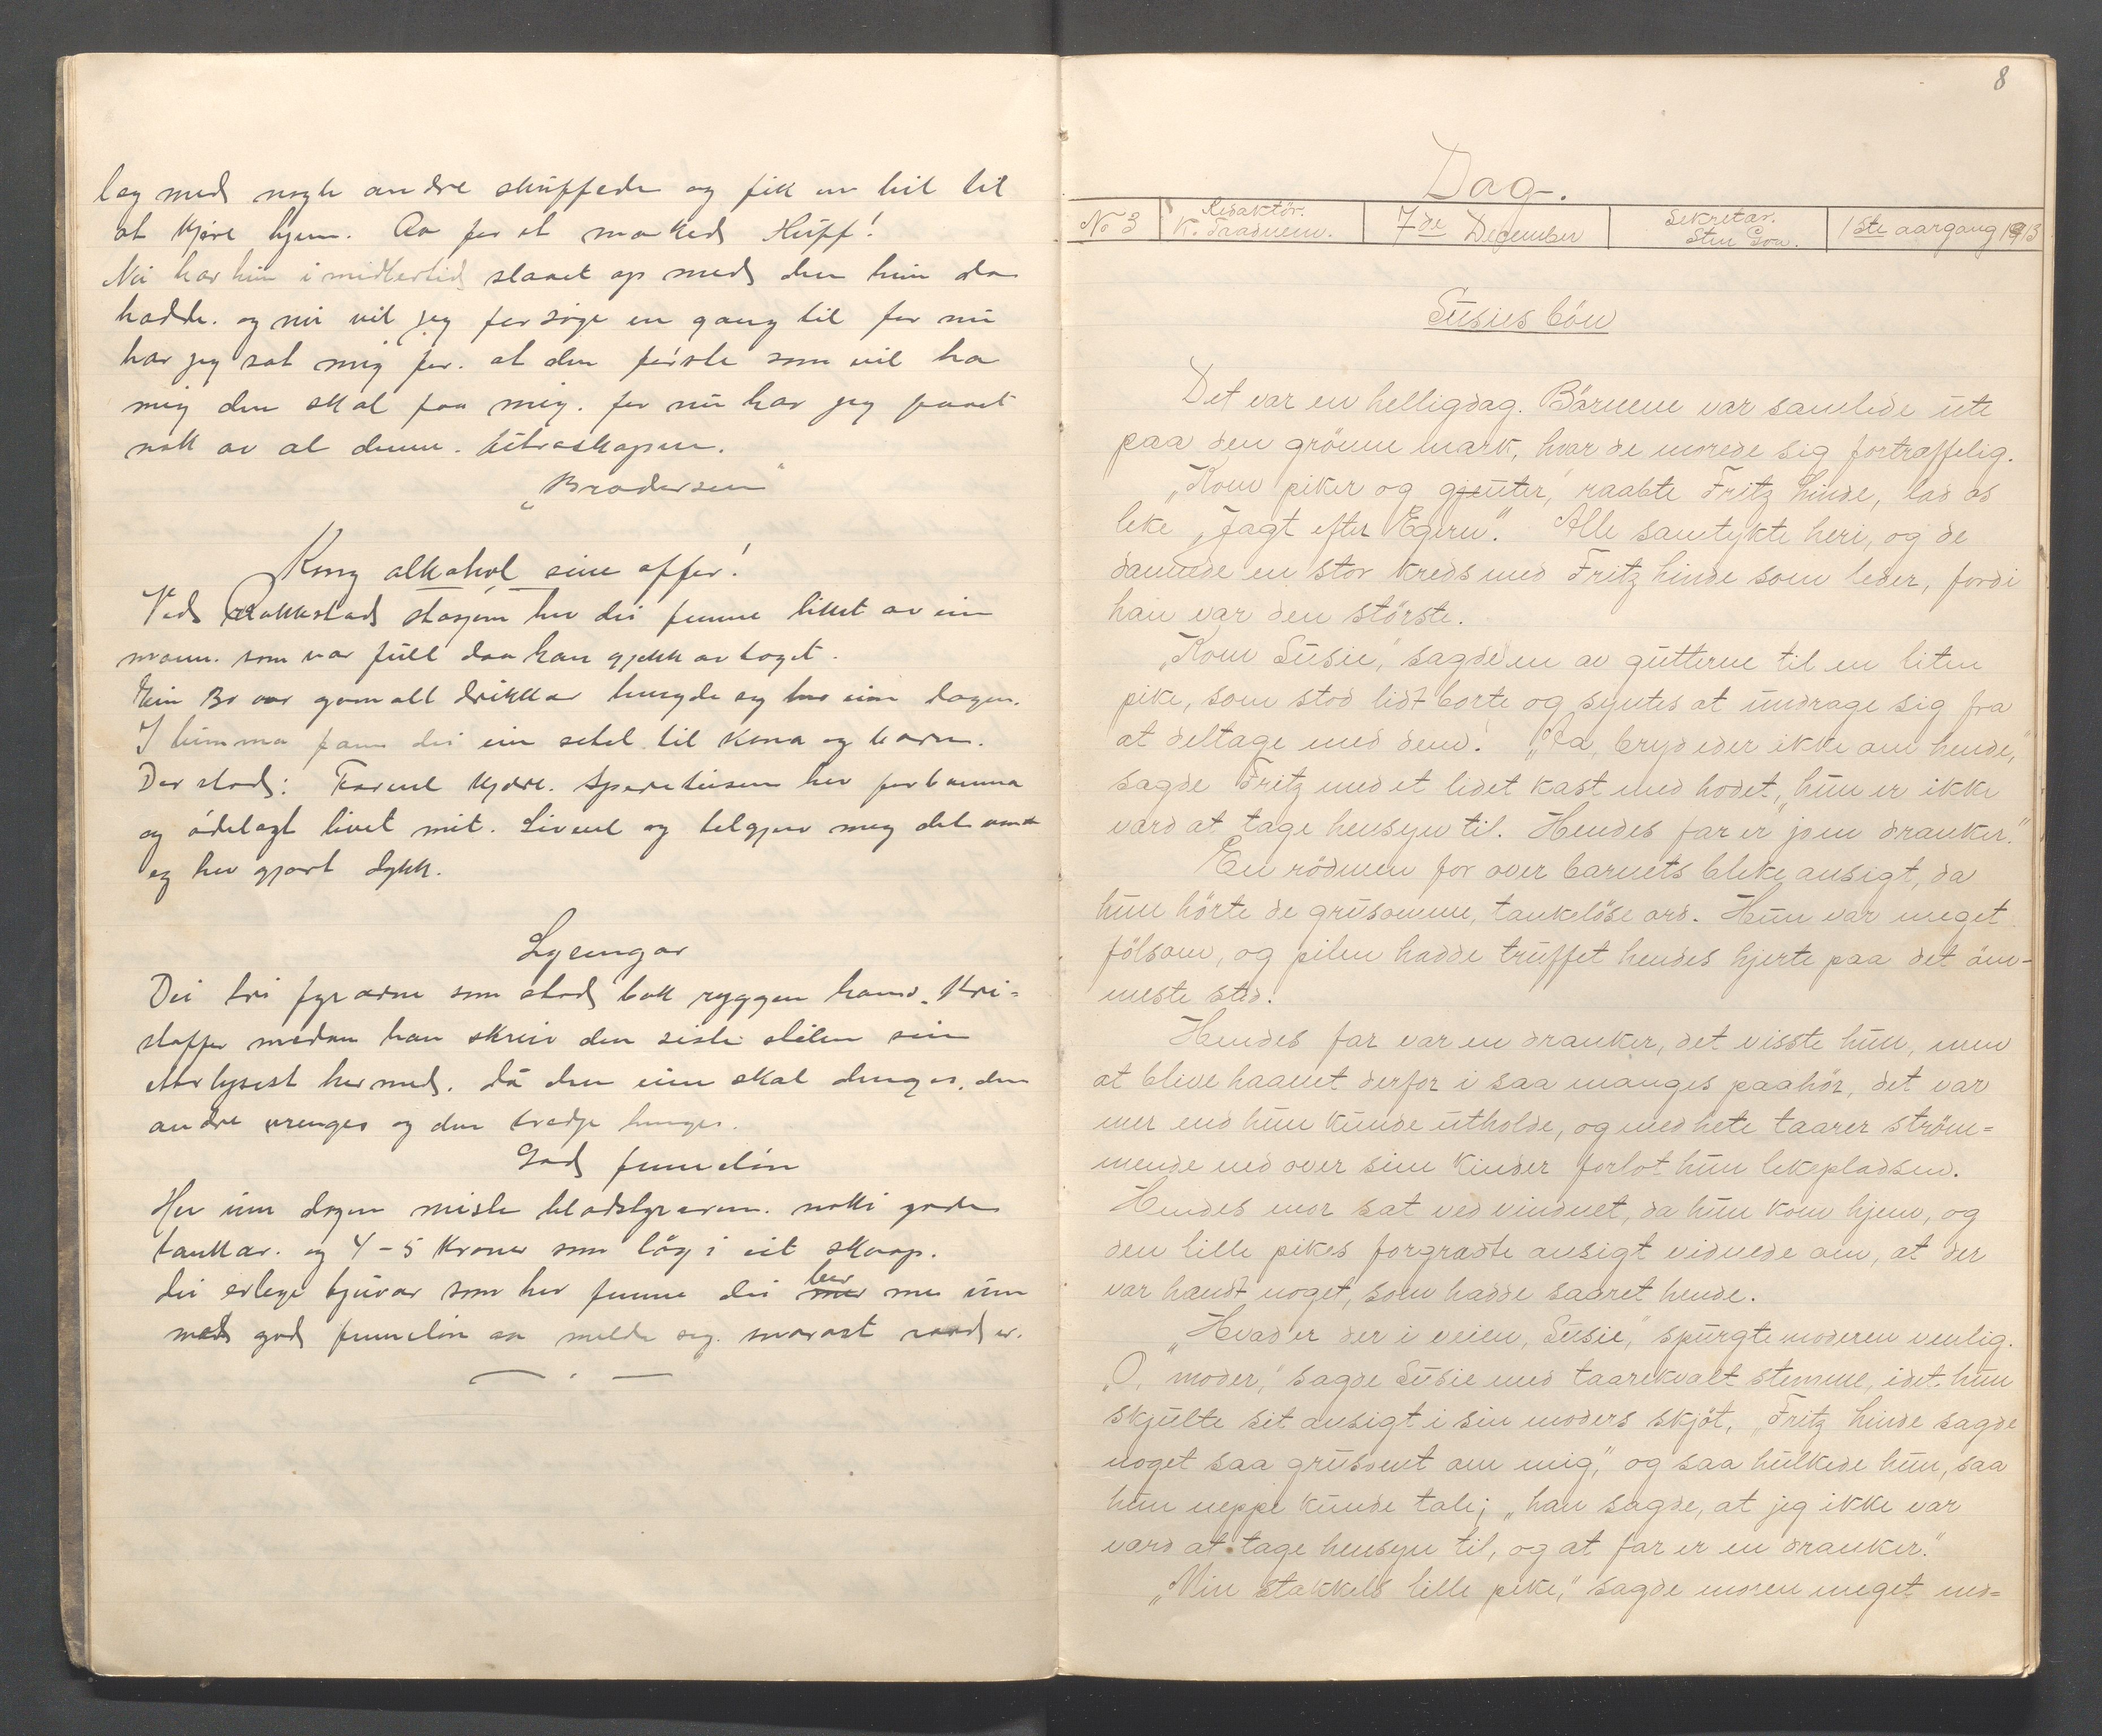 lag med nogle andre skuffede og fik en bil til
at kjøre hjem. Aa for et marked Huff!
Nu har hun imidlertid slaaet op med den hun da
hadde. og nu vil jeg forsøge en gang til for nu
har jeg sat mig for. at den første som vil ha
mig den skal faa mig. for nu har jeg faaet
nok av al denne.
„Brodersen"
Kong alkohol sine offer!
Ved Rakkestad stasjon hev dei funne liket av ein
mann. som var full daa han gjekk av toget.
Ein 80 aar gamall drikkar hengde seg her ein dagen.
I lumma fann dei ein setel til kona og borni.
Der stod: Farvel kjære. Spriten hev forbanna
og ødelagt livet mit. Livvel og tilgjev meg det vonde
eg hev gjort dykk.
Lysingar
Dei tri fyrarne som stod bak ryggen hans. Kri=
stoffer medan han skreiv den siste stilen sin
etterlysest hermed. då den eine skal denges. den
andre vrenges og den tredje henges.
God funneløn
Her um dagen miste bladstyraren. nokki gode
tankar. og 4-5 Kroner som låg i eit skaap.
Dei erlege tjuvar som hev funne dei ber me um
mod god funneløn aa melde seg. snarast raad er.
8
Dag.
No 3
Redaktör.
K. Taadnem.
7de December
Sekretær.
1ste aargang 1913
Susies bön
Det var en helligdag. Börnene var samlede ute
paa den grönne mark, hvor de morede sig fortræffelig.
„Kom piker og gjenter," raabte Fritz hinde, lad os
leke „Jagt efter Egern". Alle samtykte heri, og de
dannede en stor kreds med Fritz hinde som leder, fordi
han var den störste.
„Kom Susie," sagde en av gutterne til en liten
pike, som stod lidt borte og syntes at undrage sig fra
at deltage med dem. „Ja, bryd eder ikke om hende,"
sagde Fritz med et lidet kast med hodet, „hun er ikke
værd at tage hensyn til. Hendes far er jo en dranker."
En rödmen for over barnets bleke ansigt, da
hun hörte de grusomme, tankelöse ord. Hun var meget
fölsom, og pilen hadde truffet hendes hjerte paa det öm-
meste sted.
Hendes far var en dranker, det visste hun, men
at blive haanet derfor i saa manges paahör, det var
mer end hun kunde utholde, og med hete taarer ström=
mende ned over sine kinder forlot hun lekepladsen.
Hendes mor sat ved vinduet, da hun kom hjem, og
den lille pikes forgrædte ansigt vidnede om, at der
var hændt noget, som hadde saaret hende.
„Hvad er der i veien, Susie," spurgte moderen venlig.
„O, moder," sagde Susie med taarekvalt stemme, idet hun
skjulte sit ansigt i sin moders skjöt, „Fritz hinde sagde
noget saa grusomt om mig," og saa hulkede hun, saa
hun neppe kunde tale; „han sagde, at jeg ikke var
værd at tage hensyn til, og at far er en dranker."
„Min stakkels lille pike," sagde moren meget ned=